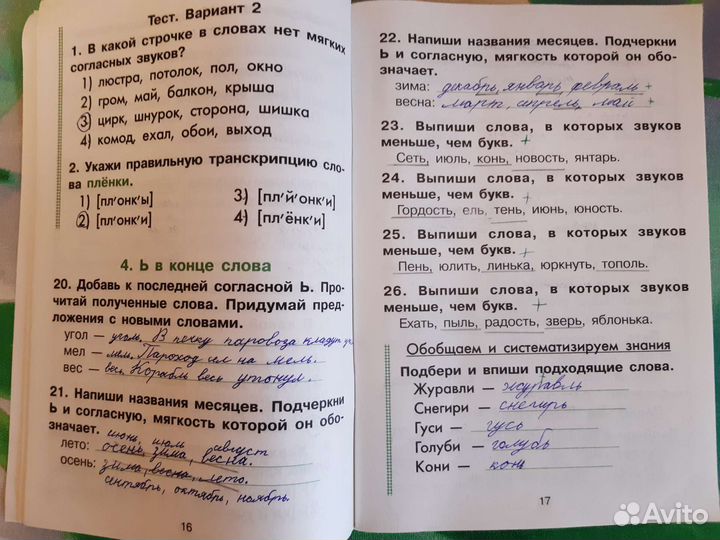 Тест. Вариант 2
1. В какой строчке в словах нет мягких
согласных звуков?
1) люстра, потолок, пол, окно
2) гром, май, балкон, крыша
3) цирк, шнурок, сторона, шишка
4) комод, ехал, обои, выход
2. Укажи правильную транскрипцию сло-
ва плёнки.
1) [пл'онк'ы]
3) [пл'й'онк'и]
2) [пл'онк'и]
4) [пл'ёнк'и]
4. Ь в конце слова
20. Добавь к последней согласной Ь. Про-
читай полученные слова. Придумай пред-
ложения с новыми словами.
угол — уголь. В печку паровоза кладут
мел — мель. Пароход сел на мель.
вес — весь. Корабль весь утонул.
21. Напиши названия месяцев. Подчеркни
Ь и согласную, мягкость которой он обо-
значает.
июнь, июль, август
лето: осень, зима, весна.
осень: зима, весна, лето.
сентябрь, октябрь, ноябрь.
16
22. Напиши названия месяцев. Подчеркни
Ь и согласную, мягкость которой он обо-
значает.
зима: декабрь, январь, февраль +
весна: март, апрель, май +
23. Выпиши слова, в которых звуков
меньше, чем букв. +
Сеть, июль, конь, новость, янтарь.
24. Выпиши слова, в которых звуков
меньше, чем букв. +
Гордость, ель, тень, июнь, юность.
25. Выпиши слова, в которых звуков
меньше, чем букв. +
Пень, юлить, линька, юркнуть, тополь.
26. Выпиши слова, в которых звуков
меньше, чем букв. +
Ехать, пыль, радость, зверь, яблонька.
Обобщаем и систематизируем знания
Подбери и впиши подходящие слова.
Журавли — журавль
Снегири — снегирь
Гуси — гусь
Голуби — голубь
Кони — конь
17
Avito